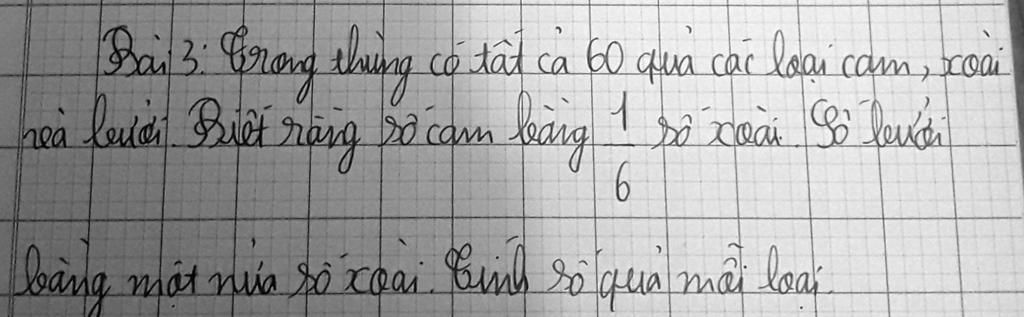 Bài 3: Trong thùng có tất cả 60 quả các loại cam, xoài
và bưởi. Biết rằng số cam bằng 1/6 số xoài. Số bưởi
bằng một nửa số xoài. Tính số quả mỗi loại.